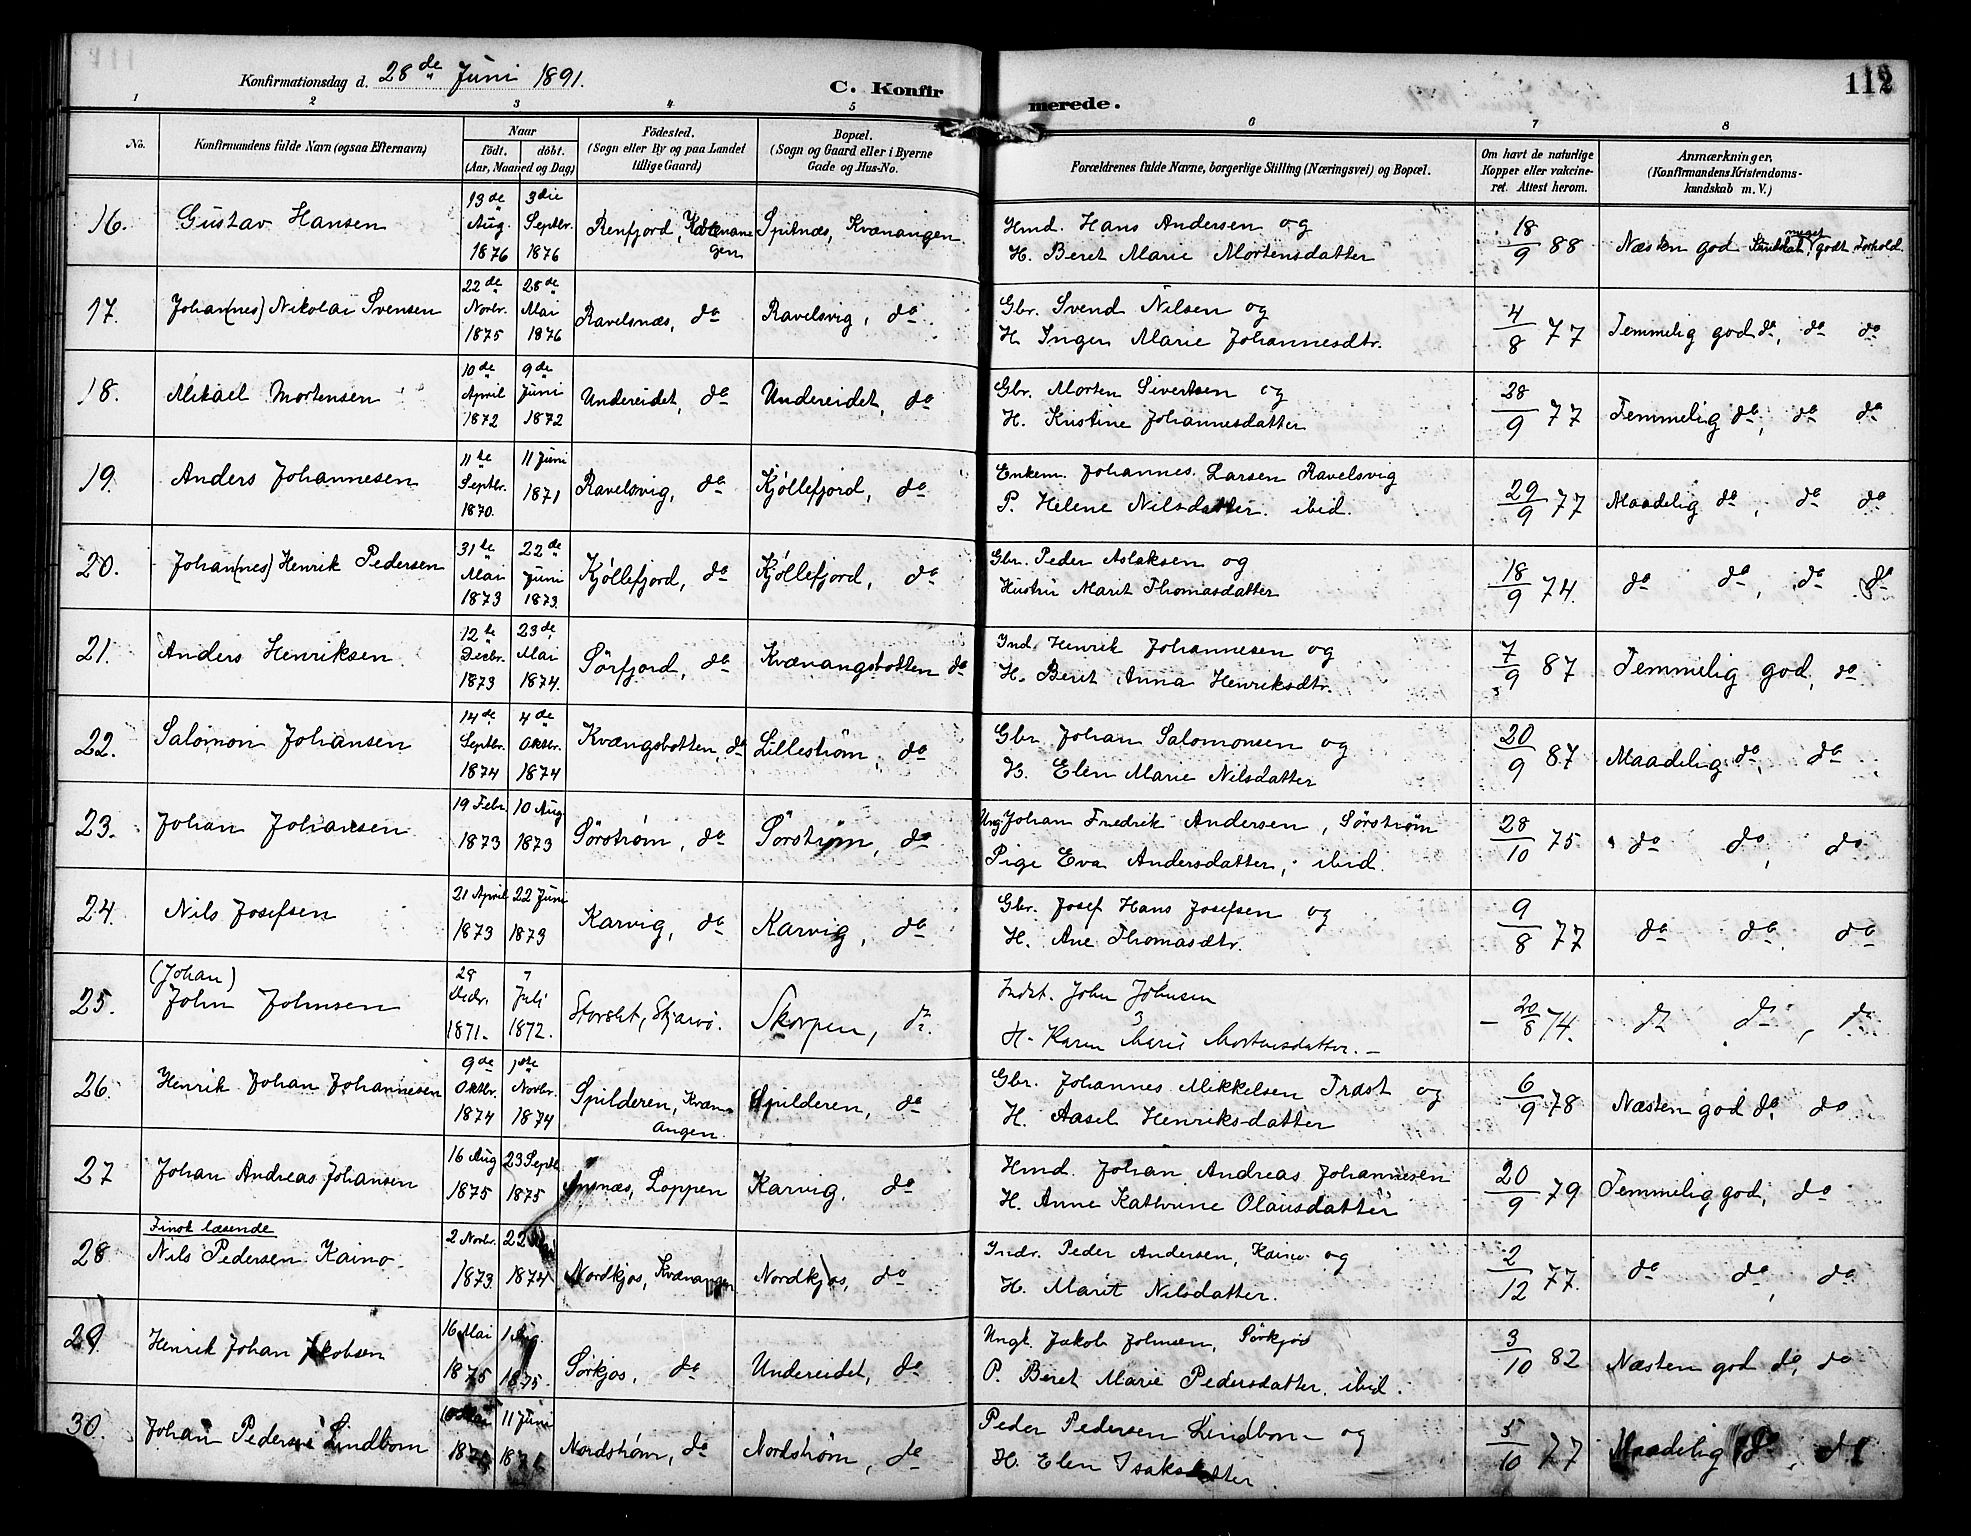 Konfirmationsdag d. 28de Juni 1891.
C. Konfirmerede.
112
1 2 3 4 5 6 7 8
No.
Konfirmandens fulde Navn (ogsaa Efternavn)
Naar
Födt. döbt.
(Aar, Maaned og Dag)
Födested.
(Sogn eller By og paa Landet
tillige Gaard)
Bopæl.
(Sogn og Gaard eller i Byerne
Gade og Hus-No.
Forældrenes fulde Navne, borgerlige Stilling (Næringsvei) og Bopæl.
Om havt de naturlige
Kopper eller vakcine-
ret. Attest herom.
Anmærkninger.
(Konfirmandens Kristendoms-
kundskab m. V.)
16. Gustav Hansen
13de Aug. 1876
3die Septbr. 1876
Renfjord, Kvænangen
Spitnæs, Kvænangen
Hmd. Hans Andersen og
H. Beret Marie Mortensdatter
18/9 88
Næsten god Kundskab, meget godt Forhold.
17. Johan(nes) Nikolai Svensen
22de Novbr. 1875
28de Mai 1876
Ravelsnæs, do
Ravelsvig, do
Gbr. Svend Nilsen og
H. Inger Marie Johannesdtr.
4/8 77
Temmelig god do, do do
18. Mikael Mortensen
10de April 1872
9de Juni 1872
Undereidet, do
Undereidet, do
Gbr. Morten Sivertsen og
H. Kristine Johannesdatter
28/9 77
Temmelig do, do do
19. Anders Johannesen
11te Septbr. 1870.
11 Juni 1871
Ravelsvig, do
Kjöllefjord, do
Enkem. Johannes Larsen Ravelsvig
P. Helene Nilsdatter ibid.
29/9 77
Maadelig do, do do
20. Johan(nes) Henrik Pedersen
31te Mai 1873
22de Juni 1873.
Kjöllefjord, do
Kjöllefjord, do
Gbr. Peder Aslaksen og
Hustru Marit Thomasdatter
18/9 74.
do do, do do
21. Anders Henriksen
12te Decbr. 1873
23de Mai 1874.
Sörfjord, do
Kvænangsbotten do
Ind. Henrik Johannesen og
H. Beret Anna Henriksdtr.
7/9 87
Temmelig god, do
22. Salomon Johansen
14de Septbr. 1874
4de Oktbr. 1874
Kvængsbotten, do
Lilleström, do
Gbr. Johan Salomonsen og
H. Elen Marie Nilsdatter
20/9 87
Maadelig do, do
23. Johan Johansen
19 Febr. 1873
10 Aug 1873
Sörström, do
Sörström, do
Ung. Johan Fredrik Andersen, Sörström
Pige Eva Andersdatter, ibid.
28/10 75
do do, do
24. Nils Josefsen
21 April 1873
22 Juni 1873
Karvig, do
Karvig, do
Gbr. Josef Hans Josefsen og
H. Ane Thomasdtr.
9/8 77
do do, do
(Johan)
25. John Johnsen
29 Decbr. 1871.
7 Juli 1872.
Storslet, Skjærvö.
Skorpen, do.
Indst. John Johnsen
H. Karen Marie Mortensdatter.
20/8 74.
do do, do
26. Henrik Johan Johannesen
9de Oktbr. 1874
1ste Novbr. 1874
Spilderen, Kvænangen.
Spilderen, do
Gbr. Johannes Mikkelsen Trast og
H. Aasel Henriksdatter
6/9 78
Næsten god do, do
27 Johan Andreas Johansen
16 Aug 1875
23 Septb. 1875
Loppen
Karvig, do
Hmd. Johan Andreas Johannesen
H. Anne Kathrine Olausdatter
20/9 79
Temmelig god, do
Finsk læsende
28 Nils Pedersen Kaino
2 Novbr. 1873.
22 1874
Nordkjos, Kvænangen
Nordkjos, do
Indr. Peder Andersen, Kaino og
H. Marit Nilsdatter.
2/12 77.
do do, do
29. Henrik Johan Jakobsen
16 Mai 1875
1 Aug. 1875.
Sörkjos, do
Undereidet, do
Ungk. Jakob Johnsen, Sörkjos
P. Beret Marie Pedersdatter, ibid.
3/10 82
Næsten god do, do
30. Johan Pedersen Lindbom
10 Mai
11 Juni
Nordström, do
Nordström, do
Peder Pedersen Lindbom og
H. Elen Isaksdatter
5/10 77
Maadelig do, do